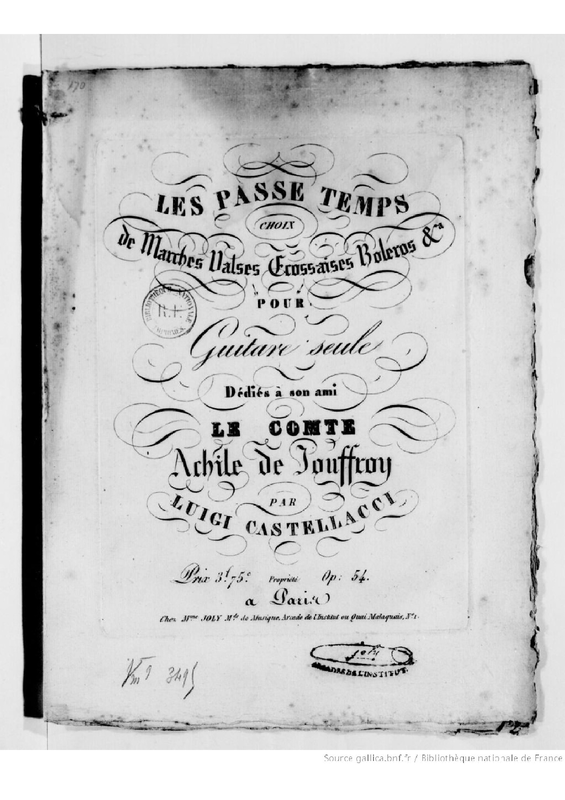 170
LES PASSE TEMPS
CHOIX
de Marches Valses Ecossaises Boleros &a
POUR
BIBLIOTHEQUE NATIONALE
R.F.
Guitare seule
Dédiés à son ami
LE COMTE
Achile de Jouffroy
PAR
LUIGI CASTELLACCI
Prix 3f. 75c. Propriété Op: 54.
a Paris
Chez Mme JOLY Mde de Musique, Arcade de l'Institut ou Quai Malaquais, No 1.
Joly
ARCADE DE L'INSTITUT.
Vm9 3495
Source gallica.bnf.fr / Bibliothèque nationale de France